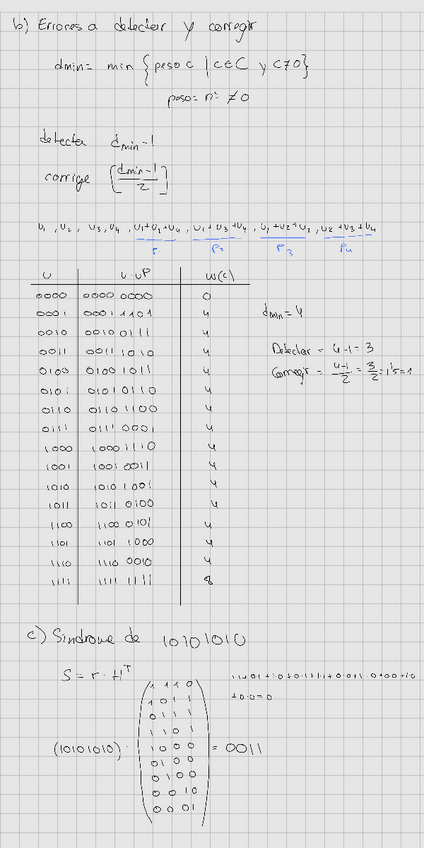 b) Errores a detectar y corregir
dmin = min { peso c | c∈C y c≠0}
peso = nº ≠0
detecta dmin-1
corrige [dmin-1 / 2]
u1, u2, u3, u4, u1+u2+u4, u1+u3+u4, u1+u2+u3, u2+u3+u4
P2 P3 P4
u u·uP w(c)
0000 0000 0000 0
0001 0001 1101 4
0010 0010 0111 4
0011 0011 1010 4
0100 0100 1011 4
0101 0101 0110 4
0110 0110 1100 4
0111 0111 0001 4
1000 1000 1110 4
1001 1001 0011 4
1010 1010 1001 4
1011 1011 0100 4
1100 1100 0101 4
1101 1101 1000 4
1110 1110 0010 4
1111 1111 1111 8
dmin = 4
Detectar = 4-1 = 3
Corregir = 4-1/2 = 3/2 = 1'5 = 1
c) Sindrome de 10101010
S = r · H^T
1 1 1 0
1 0 1 1
0 1 1 1
1 1 0 1
1 0 0 0
0 1 0 0
0 1 0 0
0 0 1 0
0 0 0 1
(10101010) · = 0011
+0·0=0